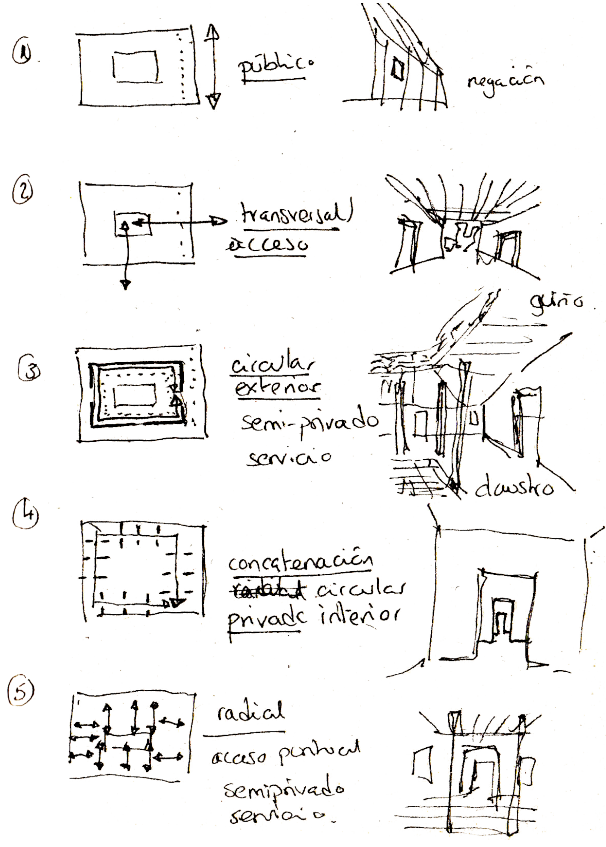 1
público
negación
2
transversal/
acceso
guiño
3
circular
exterior
semi-privado
servicio
claustro
4
concatenación
circular
privado interior
5
radial
acceso puntual
semiprivado
servicio.